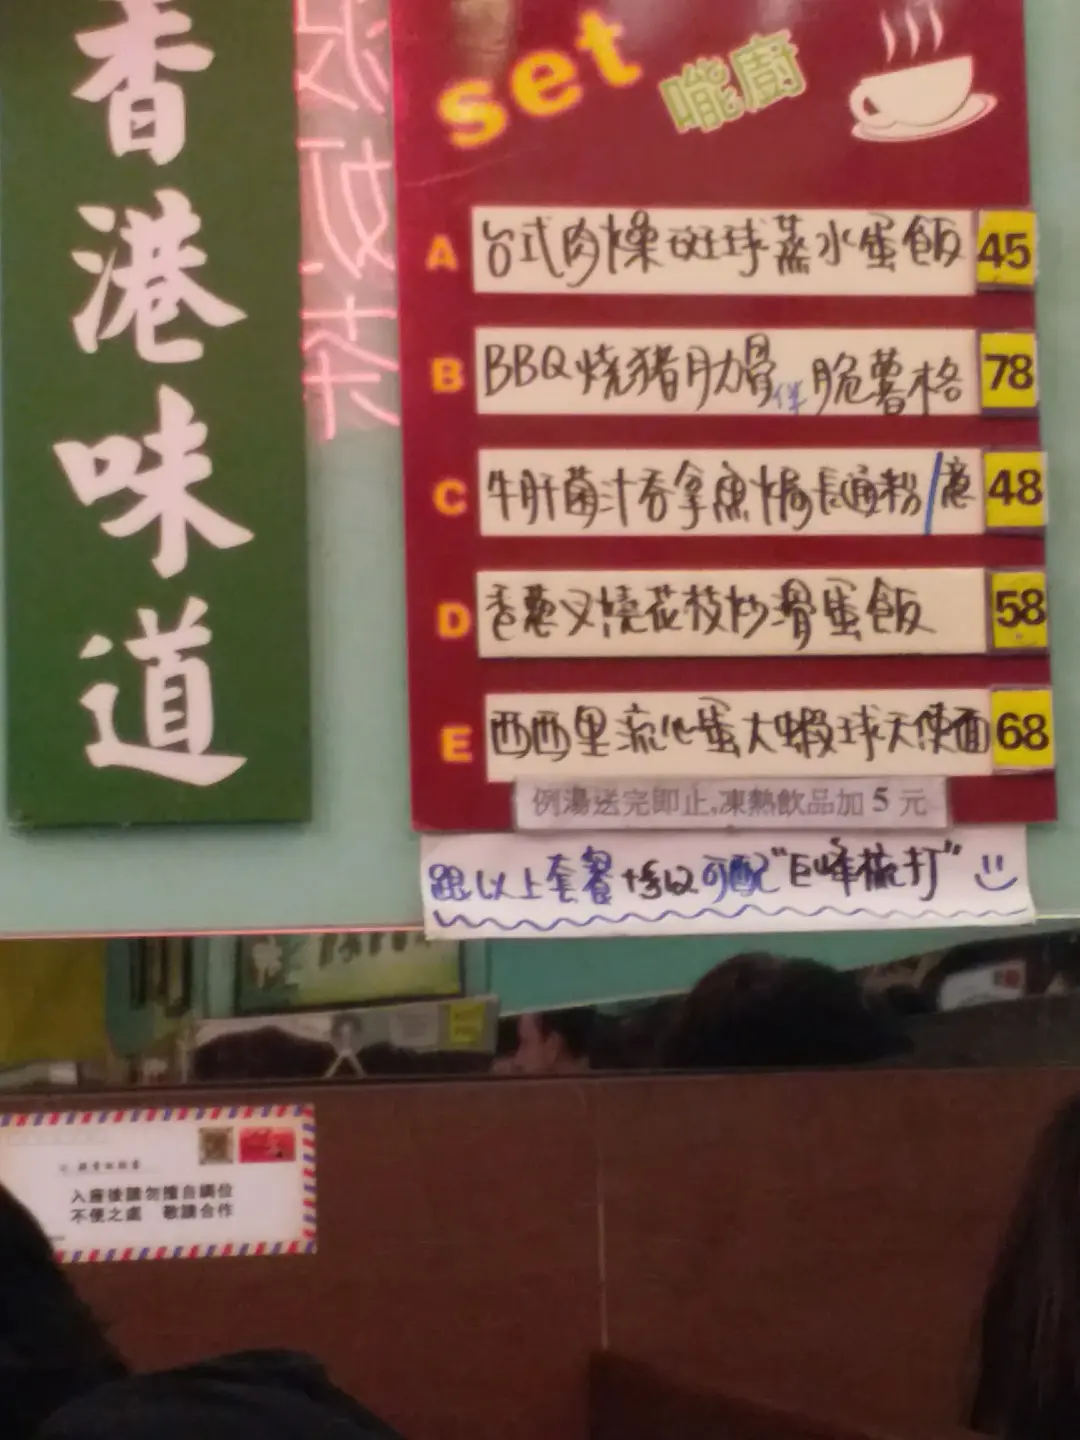 香港味道
奶茶
set 嚨廚
A 台式肉燥斑球蒸水蛋飯 45
B BBQ燒豬肋骨伴脆薯格 78
C 牛肝菌汁吞拿魚焗長通粉/意 48
D 香蔥叉燒花枝炒滑蛋飯 58
E 西西里流心蛋大蝦球天使面 68
例湯送完即止,凍熱飲品加 5 元
跟以上套餐 可配"巨峰梳打"
入座後請勿擅自調位
不便之處 敬請合作